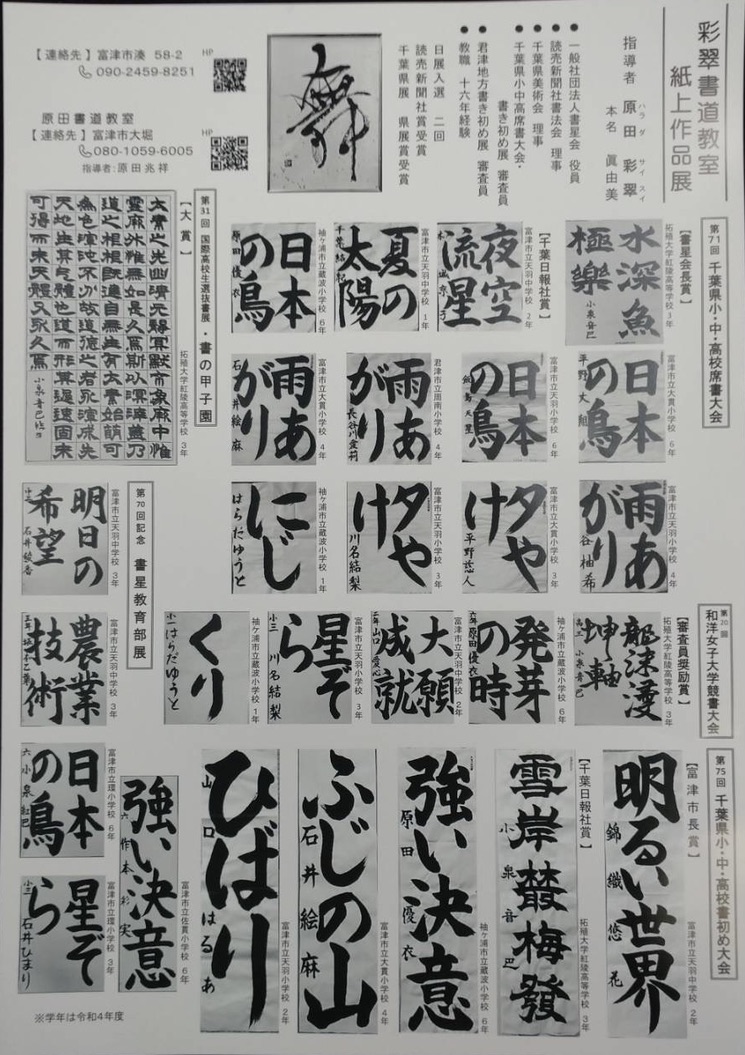 彩翠書道教室
紙上作品展
指導者 原田 彩翠
ハラダ サイスイ
本名 眞由美
●一般社団法人書星会 役員
●読売新聞社書法会 理事
●千葉県美術会 理事
●千葉県小中高席書大会・
書き初め展 審査員
●君津地方書き初め展 審査員
●教職 十六年経験
日展入選 二回
読売新聞社賞受賞
千葉県展 県展賞受賞
舞
HP
【連絡先】富津市湊 58-2
090-2459-8251
HP
原田書道教室
【連絡先】富津市大堀
080-1059-6005
指導者:原田兆祥
第71回 千葉県小・中・高校席書大会
【書星会長賞】
拓殖大学紅陵高等学校 3年
水深魚
極樂
小泉音巴
【千葉日報社賞】
富津市立天羽中学校 2年
夜空
流星
富津市立天羽中学校 1年
夏の
太陽
袖ヶ浦市立蔵波小学校 6年
日本
の鳥
原田優衣
富津市立大貫小学校 6年
日本
の鳥
富津市立天羽小学校 6年
日本
の鳥
君津市立周南小学校 4年
雨あ
がり
長谷川愛莉
富津市立大貫小学校 4年
雨あ
がり
石井絵麻
富津市立大貫小学校 4年
雨あ
がり
谷柚希
富津市立大貫小学校 3年
夕や
け
平野悠人
富津市立天羽小学校 3年
夕や
け
川名結梨
袖ヶ浦市立蔵波小学校 1年
にじ
はらだゆうと
第31回 国際高校生選抜書展・書の甲子園
【大賞】
拓殖大学紅陵高等学校 3年
第20回
和洋女子大学競書大会
【審査員奨励賞】
拓殖大学紅陵高等学校 3年
坤軸
袖ヶ浦市立蔵波小学校 6年
発芽
の時
六年 原田優衣
富津市立天羽中学校 2年
大願
成就
富津市立天羽小学校 3年
星ぞ
ら
小三 川名結梨
袖ヶ浦市立蔵波小学校 1年
くり
小一 はらだゆうと
第70回記念 書星教育部展
富津市立天羽中学校 3年
明日の
希望
富津市立天羽中学校 3年
農業
技術
富津市立環小学校 6年
日本
の鳥
富津市立環小学校 3年
星ぞ
ら
小三 石井ひまり
富津市立佐貫小学校 6年
強い決意
第75回 千葉県小・中・高校書初め大会
【富津市長賞】
富津市立天羽中学校 2年
明るい世界
錦織悠花
【千葉日報社賞】
拓殖大学紅陵高等学校 3年
雪岸叢梅發
小泉音巴
袖ヶ浦市立蔵波小学校 6年
強い決意
原田優衣
富津市立大貫小学校 4年
ふじの山
石井絵麻
富津市立大貫小学校 2年
ひばり
山口はるあ
※学年は令和4年度